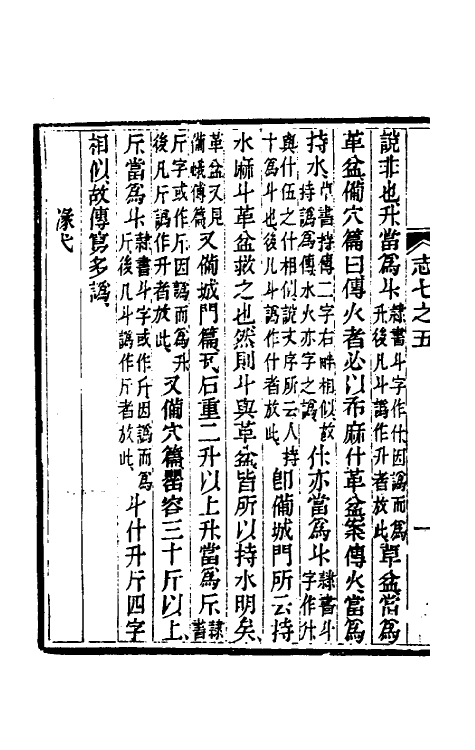 志七之五　一
說非也升當爲斗隸書斗字作什因譌而爲升後凡斗譌作升者放此草盆當爲
革盆備穴篇曰傳火者必以布麻什革盆案傳火當爲
持水艸書持傳二字右畔相似故持譌爲傳水火亦字之譌什亦當爲斗隸書斗字作什
與什伍之什相似說文序所云人持十爲斗也後凡斗譌作什者放此即備城門所云持
水麻斗革盆救之也然則斗與革盆皆所以持水明矣
革盆又見備蛾傳篇又備城門篇瓦石重二升以上升當爲斤隸書
斤字或作斤因譌而爲升後凡斤譌作升者放此又備穴篇罌容三十斤以上
斤當爲斗隸書斗字或作斤因譌而爲斤後凡斗譌作斤者放此斗什升斤四字
相似故傳寫多譌
涿弋